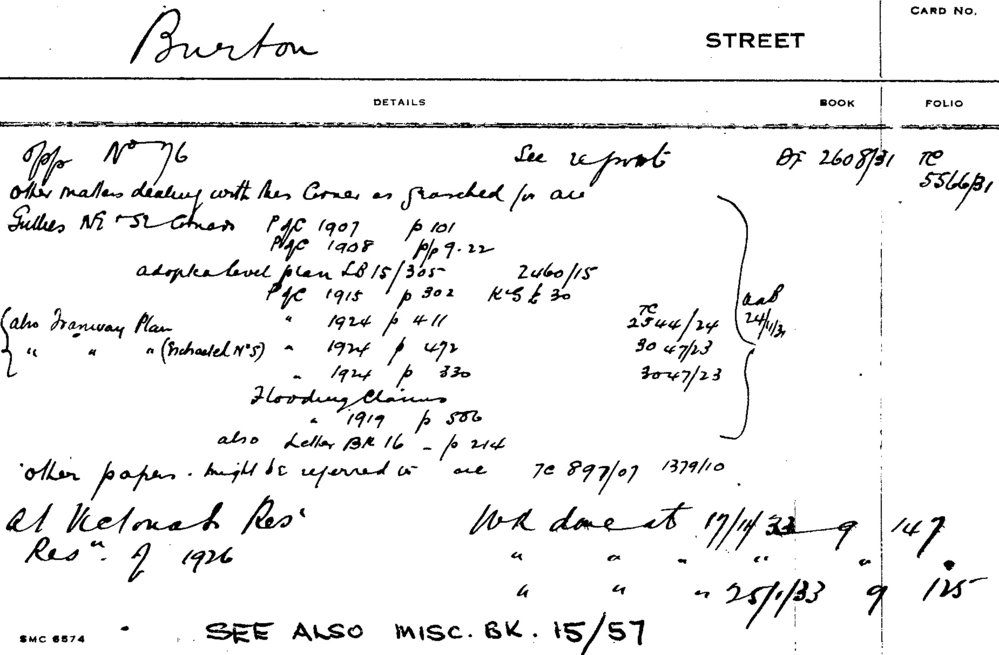 CARD NO.
Burton STREET
DETAILS BOOK FOLIO
opp No 76 See report DF 2608/31 TC
5566/31
Other matters dealing with this Corner as searched for are
Gullies NE & SE Corners P of C 1907 p 101
P of C 1908 pp 9.22
adopted level plan LB 15/305 2460/15
P of C 1915 p 302 30
also Tramway Plan " 1924 p 411 TC 2544/24
" " " (Extracted Nos) " 1924 p 472 3047/23
" 1924 p 330 3047/23
24/11/31
Flooding Claims
" 1919 p 506
also Letter BK 16 - p 214
other papers. might be referred to are TC 897/07 1379/10
at Victoria St Res' WK done at 17/11/33 9 147
Resn. of 1926 " " " " " "
" " " 25/1/33 9 125
SMC 6574 SEE ALSO MISC. BK. 15/57